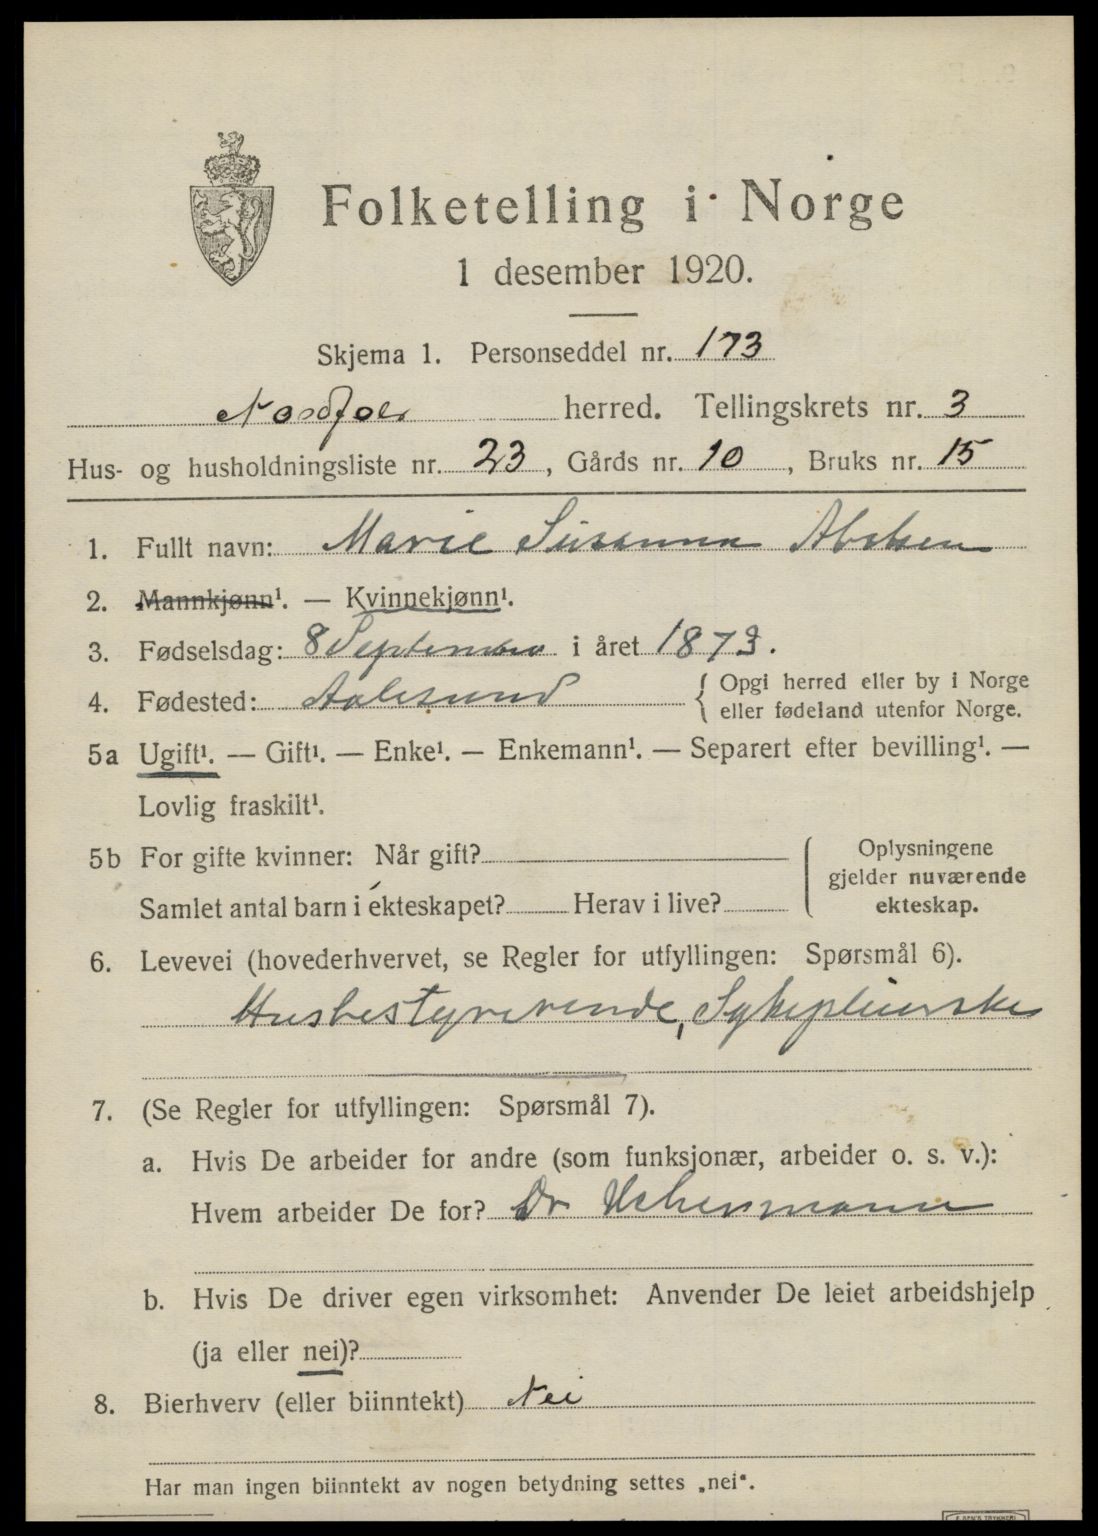 Folketelling i Norge
1 desember 1920.
Skjema 1. Personseddel nr. 173
herred. Tellingskrets nr. 3
Hus- og husholdningsliste nr. 23, Gårds nr. 10, Bruks nr. 15
1. Fullt navn: Marie Susanna
2. Mannkjønn¹. — Kvinnekjønn¹.
3. Fødselsdag: 8 September i året 1873.
4. Fødested: Aalesund { Opgi herred eller by i Norge
eller fødeland utenfor Norge.
5a Ugift¹. — Gift¹. — Enke¹. — Enkemann¹. — Separert efter bevilling¹. —
Lovlig fraskilt¹.
5b For gifte kvinner: Når gift?
Samlet antal barn i ekteskapet? Herav i live?
Oplysningene
gjelder nuværende
ekteskap.
6. Levevei (hovederhvervet, se Regler for utfyllingen: Spørsmål 6).
Husbestyrerende, Sykepleierske
7. (Se Regler for utfyllingen: Spørsmål 7).
a. Hvis De arbeider for andre (som funksjonær, arbeider o. s. v.):
Hvem arbeider De for? Dr
b. Hvis De driver egen virksomhet: Anvender De leiet arbeidshjelp
(ja eller nei)?
8. Bierhverv (eller biinntekt) Nei
Har man ingen biinntekt av nogen betydning settes „nei“.